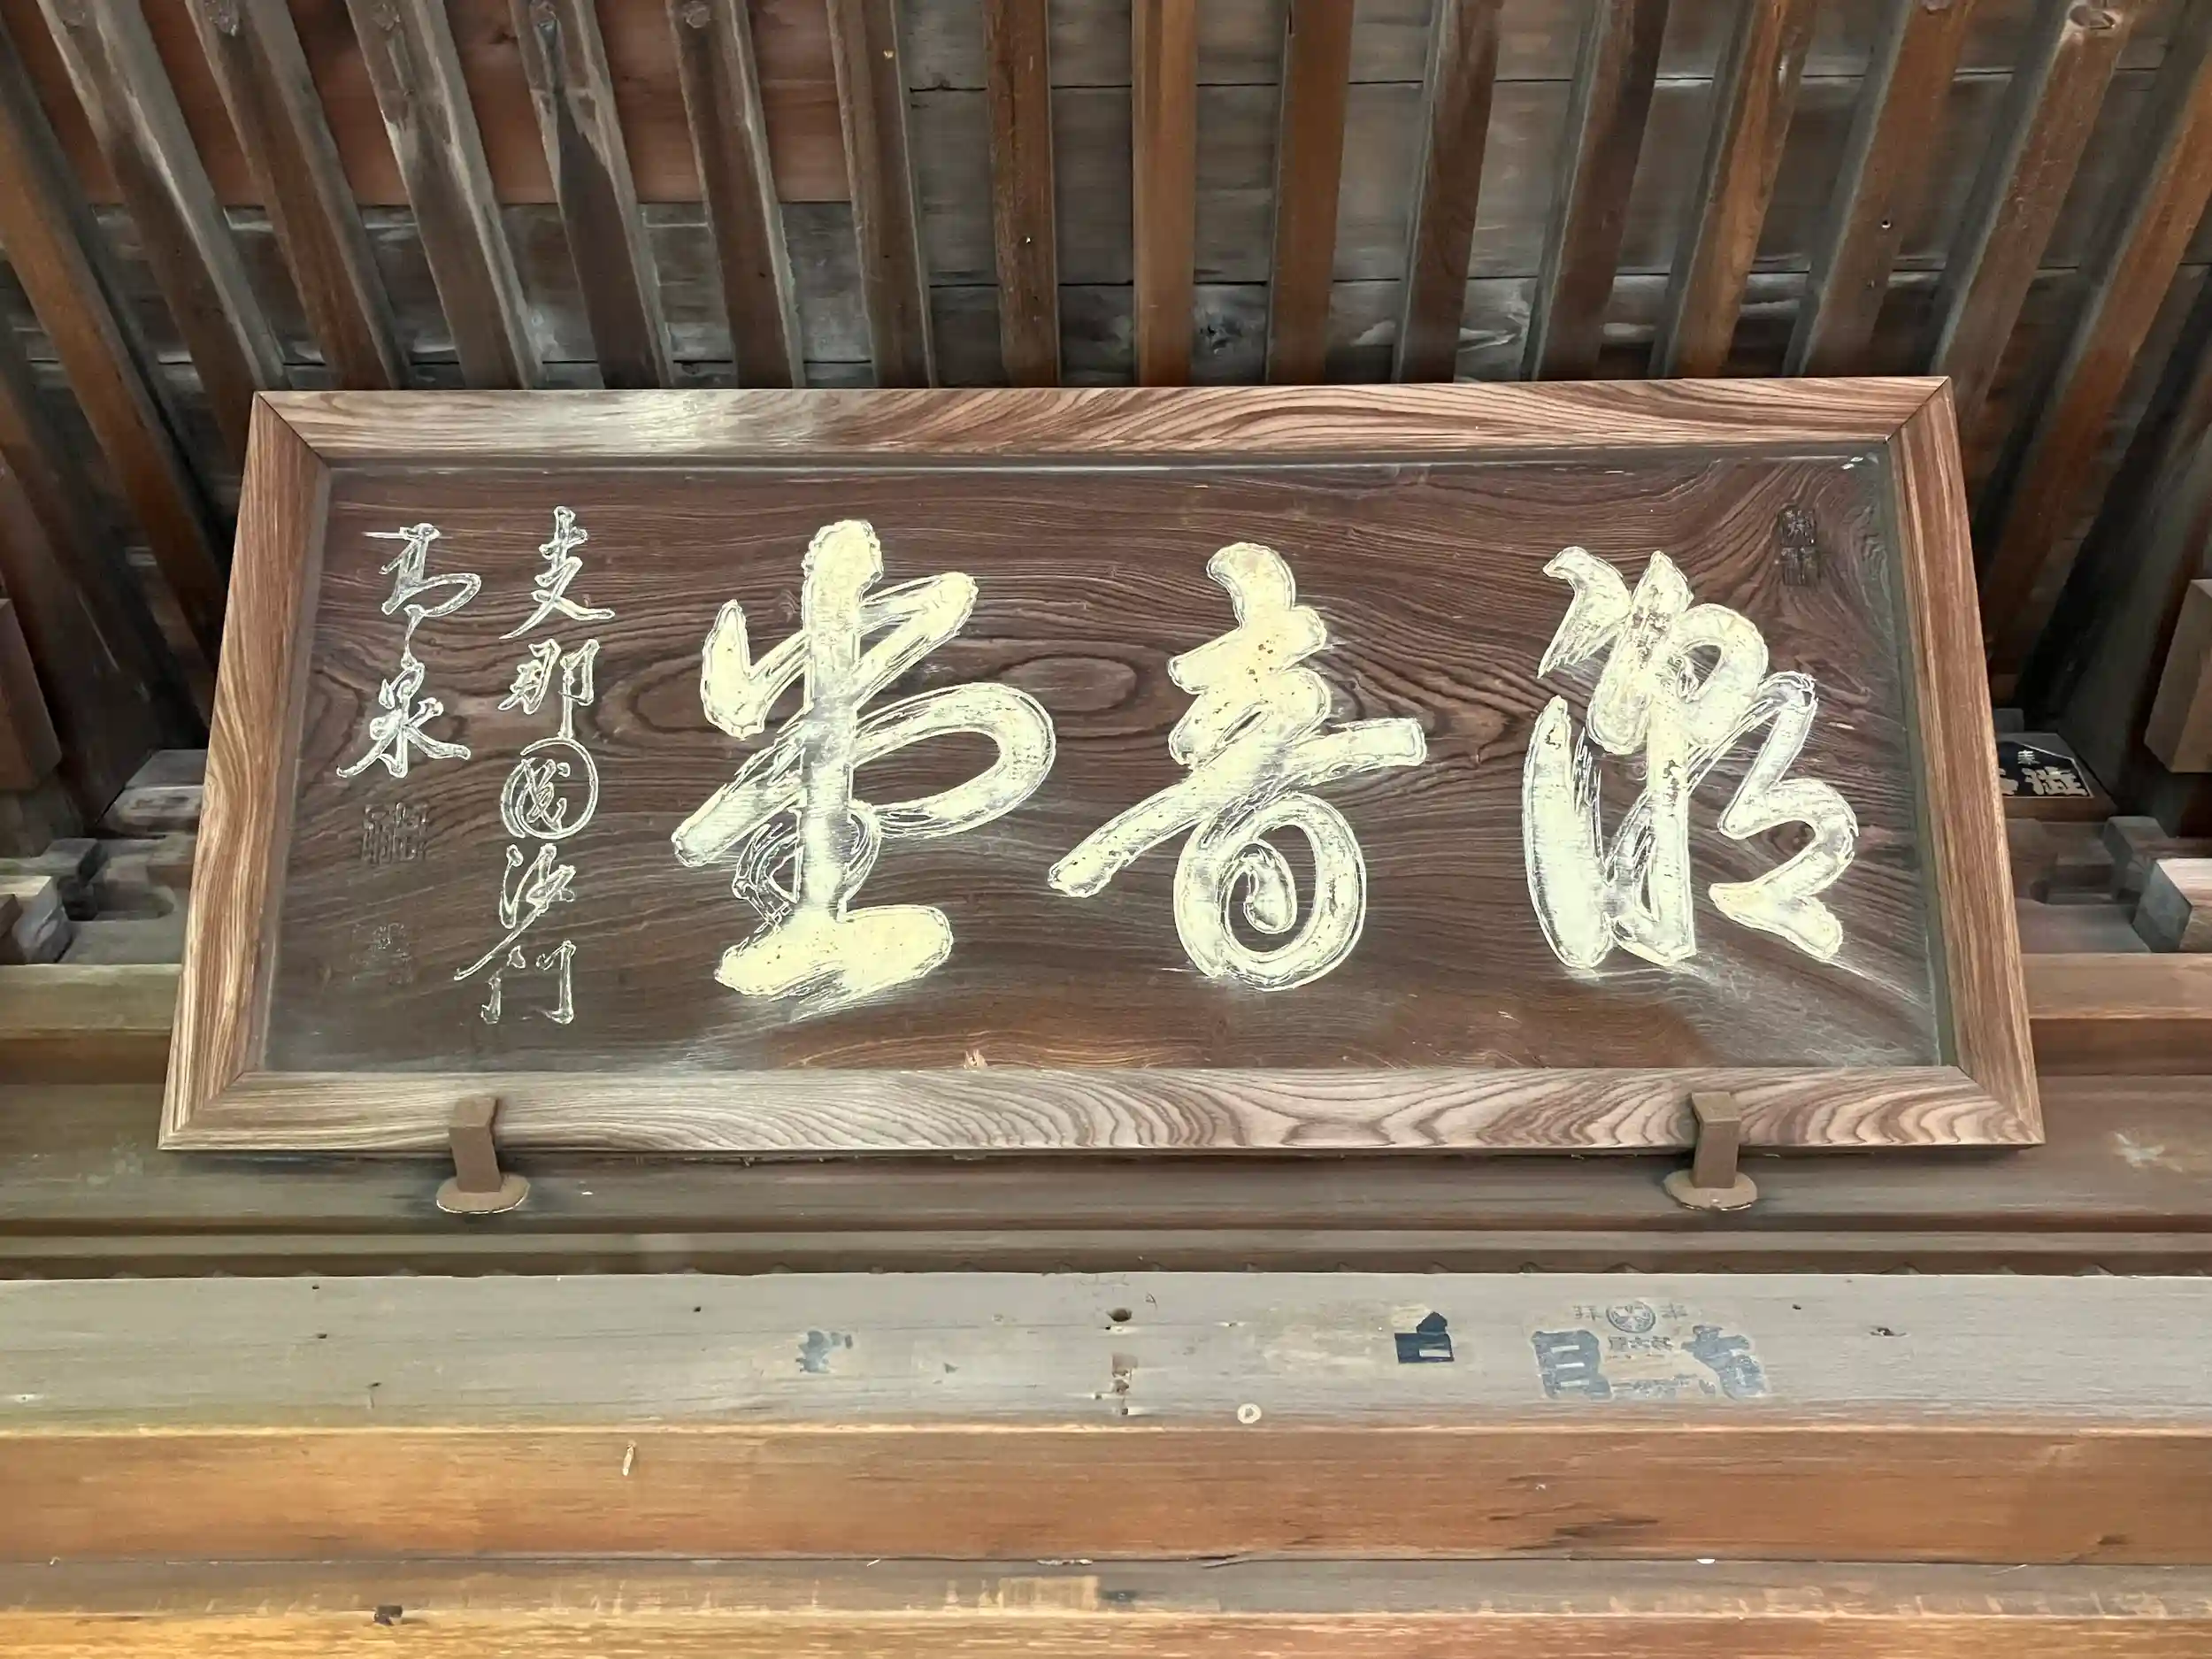 潮音堂
支那國沙門
高泉